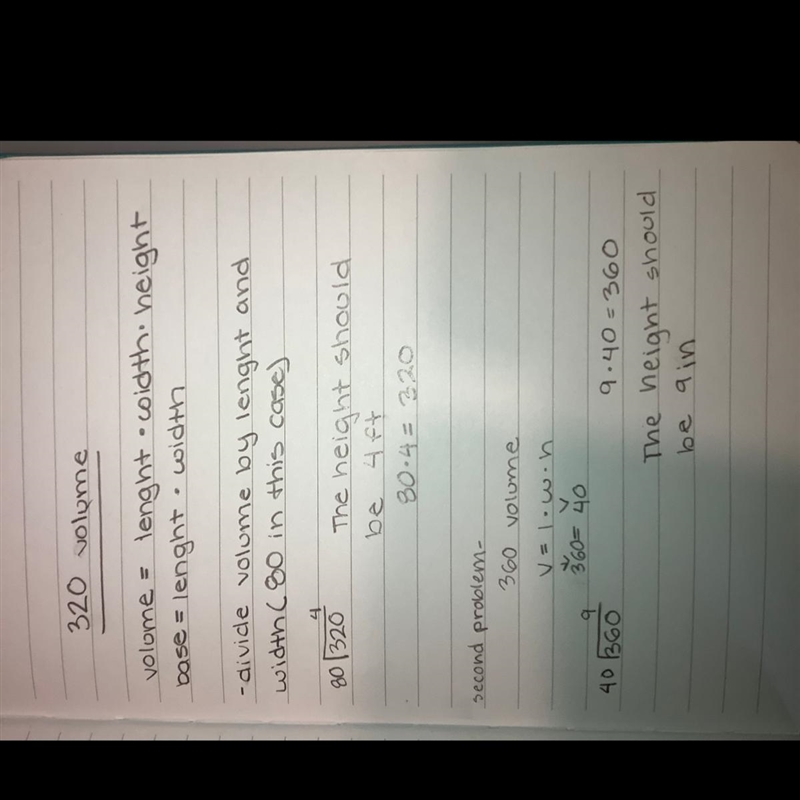 320 volume
volume = lenght · width · height
base = lenght · width
-divide volume by lenght and
width (80 in this case)
4
80 320 The height should
be 4 ft
80 · 4 = 320
second problem-
360 volume
V = l · w · h
360 = 40
9
40 360 9 · 40 = 360
The height should
be 9 in